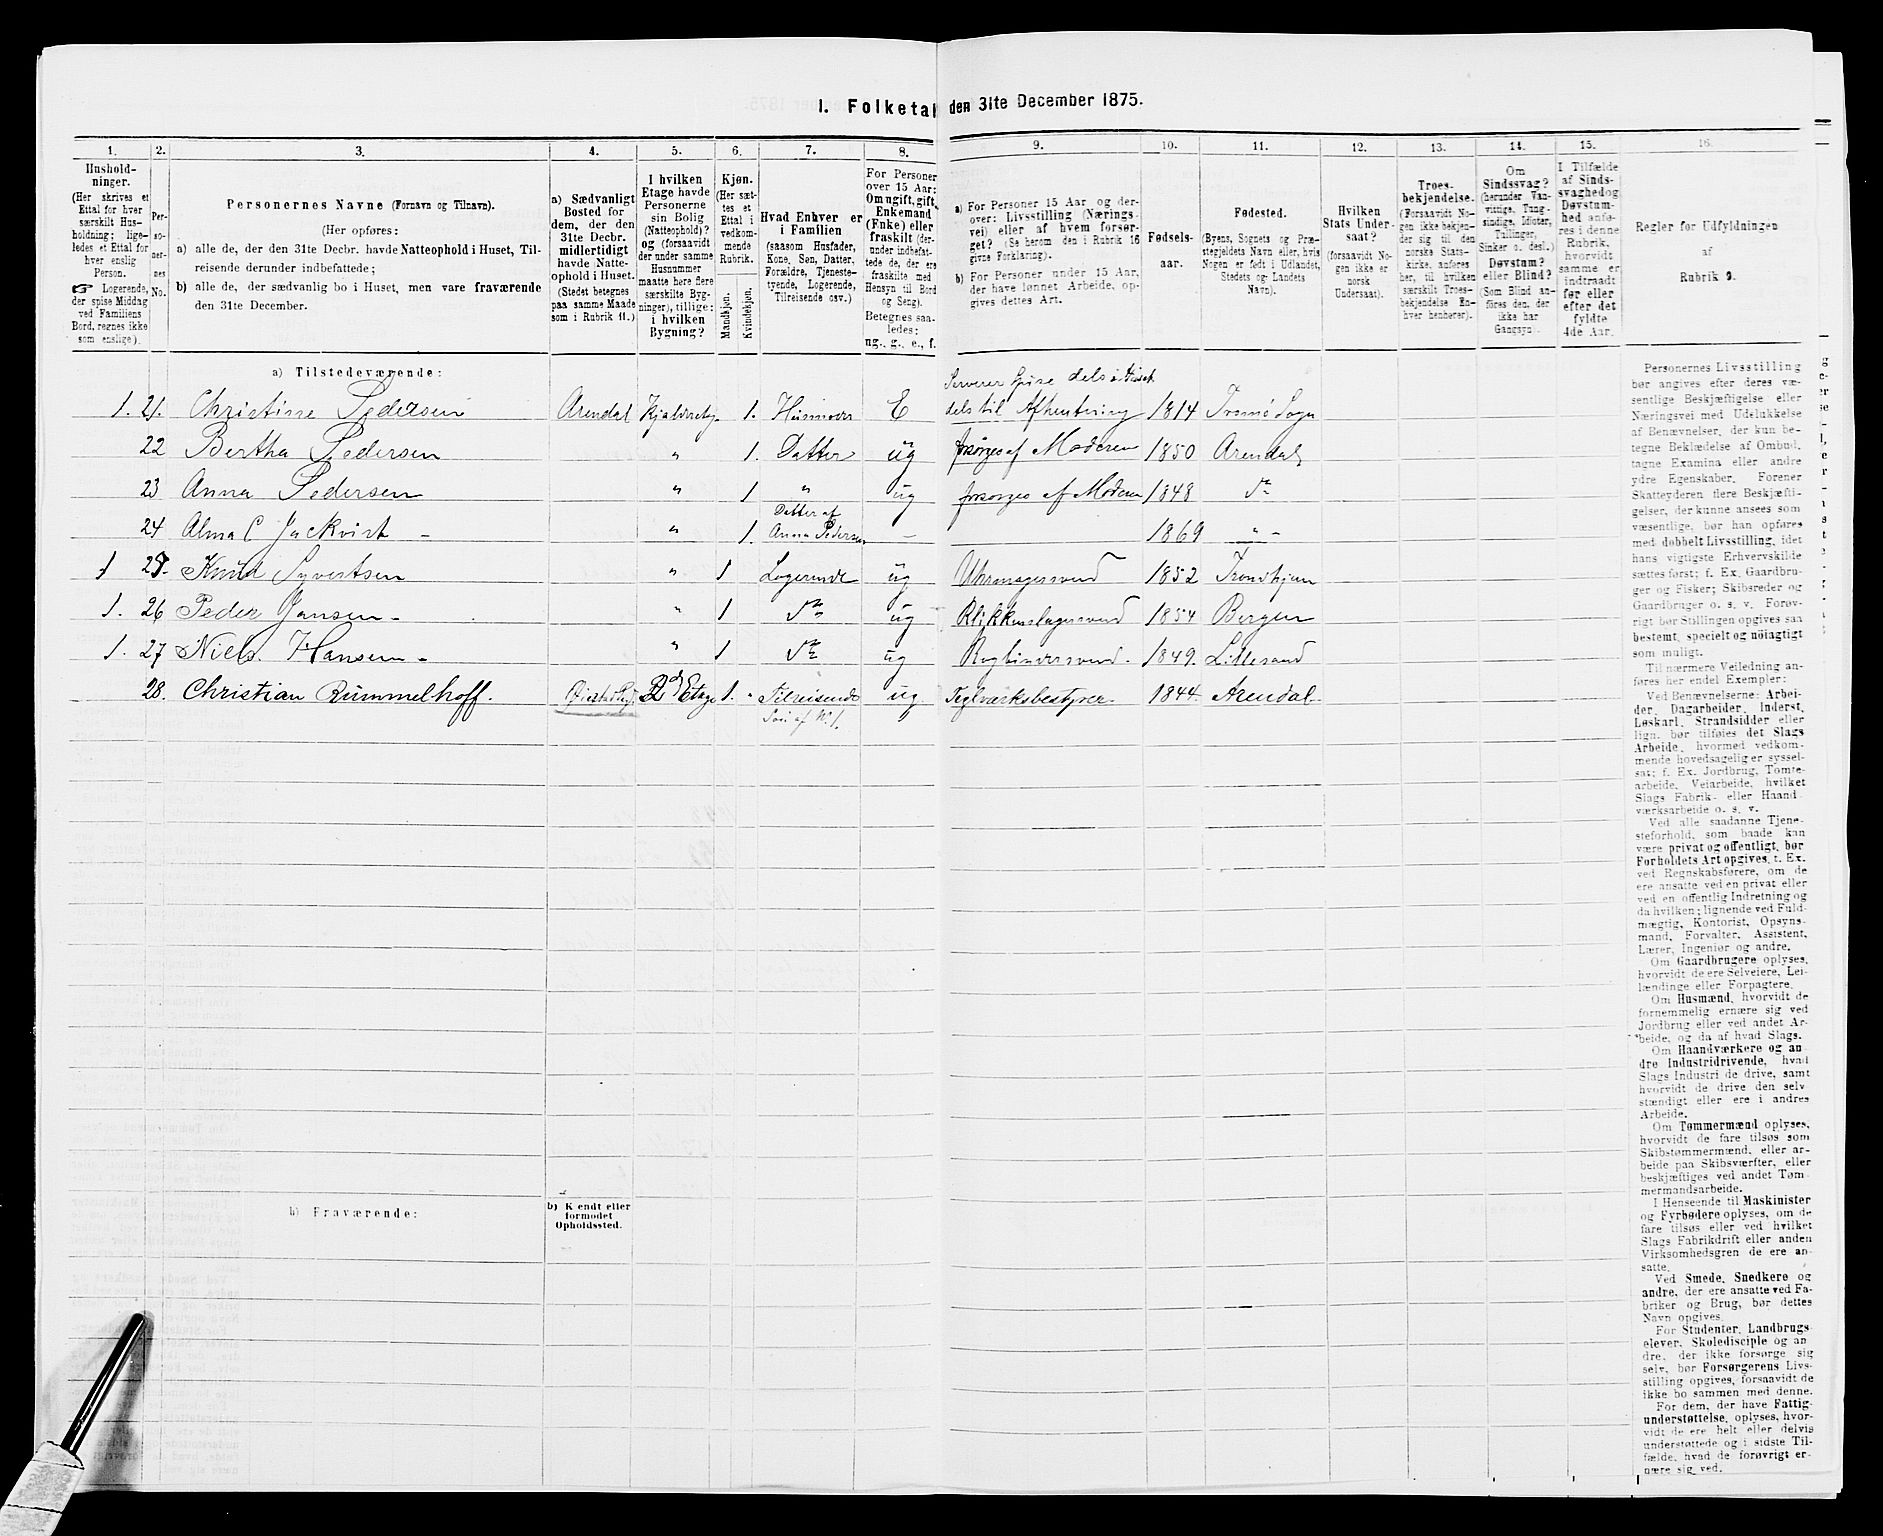 I. Folketal den 31te December 1875.
1.
Hushold-
ninger.
(Her skrives et
Ettal for hver
særskilt Hus-
holdning; lige-
ledes et Ettal for
hver enslig
Person.
☞ Logerende,
der spise Middag
ved Familiens
Bord, regnes ikke
som enslige).
2.
Per-
so-
ner-
nes
No.
3.
Personernes Navne (Fornavn og Tilnavn).
(Her opføres:
a) alle de, der den 31te Decbr. havde Natteophold i Huset, Til-
reisende derunder indbefattede;
b) alle de, der sædvanlig bo i Huset, men vare fraværende
den 31te December.
4.
a) Sædvanligt
Bosted for
dem, der den
31te Decbr.
midlertidigt
havde Natte-
ophold i Huset.
(Stedet betegnes
paa samme Maade
som i Rubrik 11.)
5.
I hvilken
Etage havde
Personerne
sin Bolig
(Natteophold)?
og (forsaavidt
der under samme
Husnummer
maatte høre flere
særskilte Byg-
ninger), tillige:
i hvilken
Bygning?
6.
Kjøn.
(Her sæt-
tes et
Ettal i
vedkom-
mende
Rubrik.
Mandkjøn.
Kvindekjøn.
7.
Hvad Enhver er
i Familien
(saasom Husfader,
Kone, Søn, Datter,
Forældre, Tjeneste-
tyende, Logerende,
Tilreisende osv.)
8.
For Personer
over 15 Aar:
Om ugift, gift,
Enkemand
(Enke) eller
fraskilt (der-
under indbefat-
tede de, der ere
fraskilte med
Hensyn til Bord
og Seng).
Betegnes saa-
ledes:
ug., g., e., f.
9.
a) For Personer 15 Aar og der-
over: Livsstilling (Nærings-
vei) eller af hvem forsør-
get? (Se herom den i Rubrik 16
givne Forklaring).
b) For Personer under 15 Aar,
der have lønnet Arbeide, op-
gives dettes Art.
10.
Fødsels-
aar.
11.
Fødested.
(Byens, Sognets og Præ-
stegjeldets Navn eller, hvis
Nogen er født i Udlandet,
Stedets og Landets
Navn).
12.
Hvilken
Stats Under-
saat?
(forsaavidt No-
gen ikke er
norsk
Undersaat).
13.
Troes-
bekjendelse.
(Forsaavidt No-
gen ikke bekjen-
der sig til den
norske Stats-
kirke, anføres
her, til hvilken
særskilt Troes-
bekjendelse En-
hver henhører).
14.
Om
Sindssvag?
(herunder Van-
vittige, Tung-
sindige, Idioter,
Tullinger,
Sinker o. desl.)
Døvstum?
eller Blind?
(Som Blind an-
føres den, der
ikke har
Gangsyn).
15.
I Tilfælde
af Sinds-
svaghed og
Døvstum-
hed anfø-
res i denne
Rubrik,
hvorvidt
samme er
indtraadt
før eller
efter det
fyldte
4de Aar.
16.
Regler for Udfyldningen
af
Rubrik 9.
a) Tilstedeværende:
1. 21. Christine Pedersen Arendal 1. Husmoder E Serverer Spise dels i Huset dels til Afhentning 1814 Tromø Sogn
22 Bertha Pedersen " 1. Datter ug forsørges af Moderen 1850 Arendal
23 Anna Pedersen " 1 " ug forsørges af Moderen 1848 do
24 Alma C Jackvist - " 1. Datter af Anna Pedersen - 1869 "-
1 25. Knud Syvertsen " 1 Logerende ug Uhrmagersvend 1852 Trondhjem
1. 26 Peder Jansen - " 1 do ug Blikkenslagersvend 1854 Bergen
1. 27 Niels Hansen - " 1 do ug Bogbindersvend. 1849. Lillesand
28. Christian Rummelhoff. 2den Etage 1. " Tilreisende Søn af No 1. ug Teglværksbestyrer 1844. Arendal.
b) Fraværende:
b) Kjendt eller
formodet
Opholdssted.
Personernes Livsstilling
bør angives efter deres væ-
sentlige Beskjæftigelse eller
Næringsvei med Udelukkelse
af Benævnelser, der kun be-
tegne Beklædelse af Ombud,
tagne Examina eller andre
ydre Egenskaber. Forener
Skatteyderen flere Beskjæfti-
gelser, der kunne ansees som
væsentlige, bør han opføres
med dobbelt Livsstilling, idet
hans vigtigste Erhvervskilde
sættes først; f. Ex. Gaardbru-
ger og Fisker; Skibsreder og
Gaardbruger o. s. v. Forøv-
rigt bør Stillingen opgives saa
bestemt, specielt og nöiagtigt
som muligt.
Til nærmere Veiledning an-
føres her endel Exempler:
Ved Benævnelserne: Arbei-
der, Dagarbeider, Inderst,
Løskarl, Strandsidder eller
lign. bør tilføies det Slags
Arbeide, hvormed vedkom-
mende hovedsagelig er syssel-
sat; f. Ex. Jordbrug, Tomte-
arbeide, Veiarbeide, hvilket
Slags Fabrik- eller Haand-
værksarbeide o. s. v.
Ved alle saadanne Tjene-
steforhold, som baade kan
være privat og offentligt, bør
Forholdets Art opgives, f. Ex.
ved Regnskabsførere, om de
ere ansatte ved en privat eller
ved en offentlig Indretning og
da hvilken; lignende ved Fuld-
mægtig, Kontorist, Opsyns-
mand, Forvalter, Assistent,
Lærer, Ingeniør og andre.
Om Gaardbrugere oplyses,
hvorvidt de ere Selveiere, Lei-
lændinge eller Forpagtere.
Om Husmænd, hvorvidt de
fornemmelig ernære sig ved
Jordbrug eller ved andet Ar-
beide, og da af hvad Slags.
Om Haandværkere og an-
dre Industridrivende, hvad
Slags Industri de drive, samt
hvorvidt de drive den selv-
stændigt eller ere i andres
Arbeide.
Om Tømmermænd oplyses,
hvorvidt de fare tilsøs som
Skibstømmermænd, eller ar-
beide paa Skibsværfter, eller
beskjæftiges ved andet Tøm-
mermandsarbeide.
I Henseende til Maskinister
og Fyrbødere oplyses, om de
fare tilsøs eller ved hvilket
Slags Fabrikdrift eller anden
Virksomhedsgren de ere an-
satte.
Ved Smede, Snedkere og
andre, der ere ansatte ved Fa-
briker og Brug, bør dettes
Navn opgives.
For Studenter, Landbrugs-
elever, Skoledisciple og an-
dre, der ikke forsørge sig
selv, bør Forsørgerens Livs-
stilling opgives, forsaavidt de
ikke bo sammen med denne.
For dem, der have Fattig-
understøttelse, oplyses, hvor-
vidt de ere helt eller delvis
understøttede og i sidste Til-
fælde, hvad de forøvrigt er-
nære sig ved.